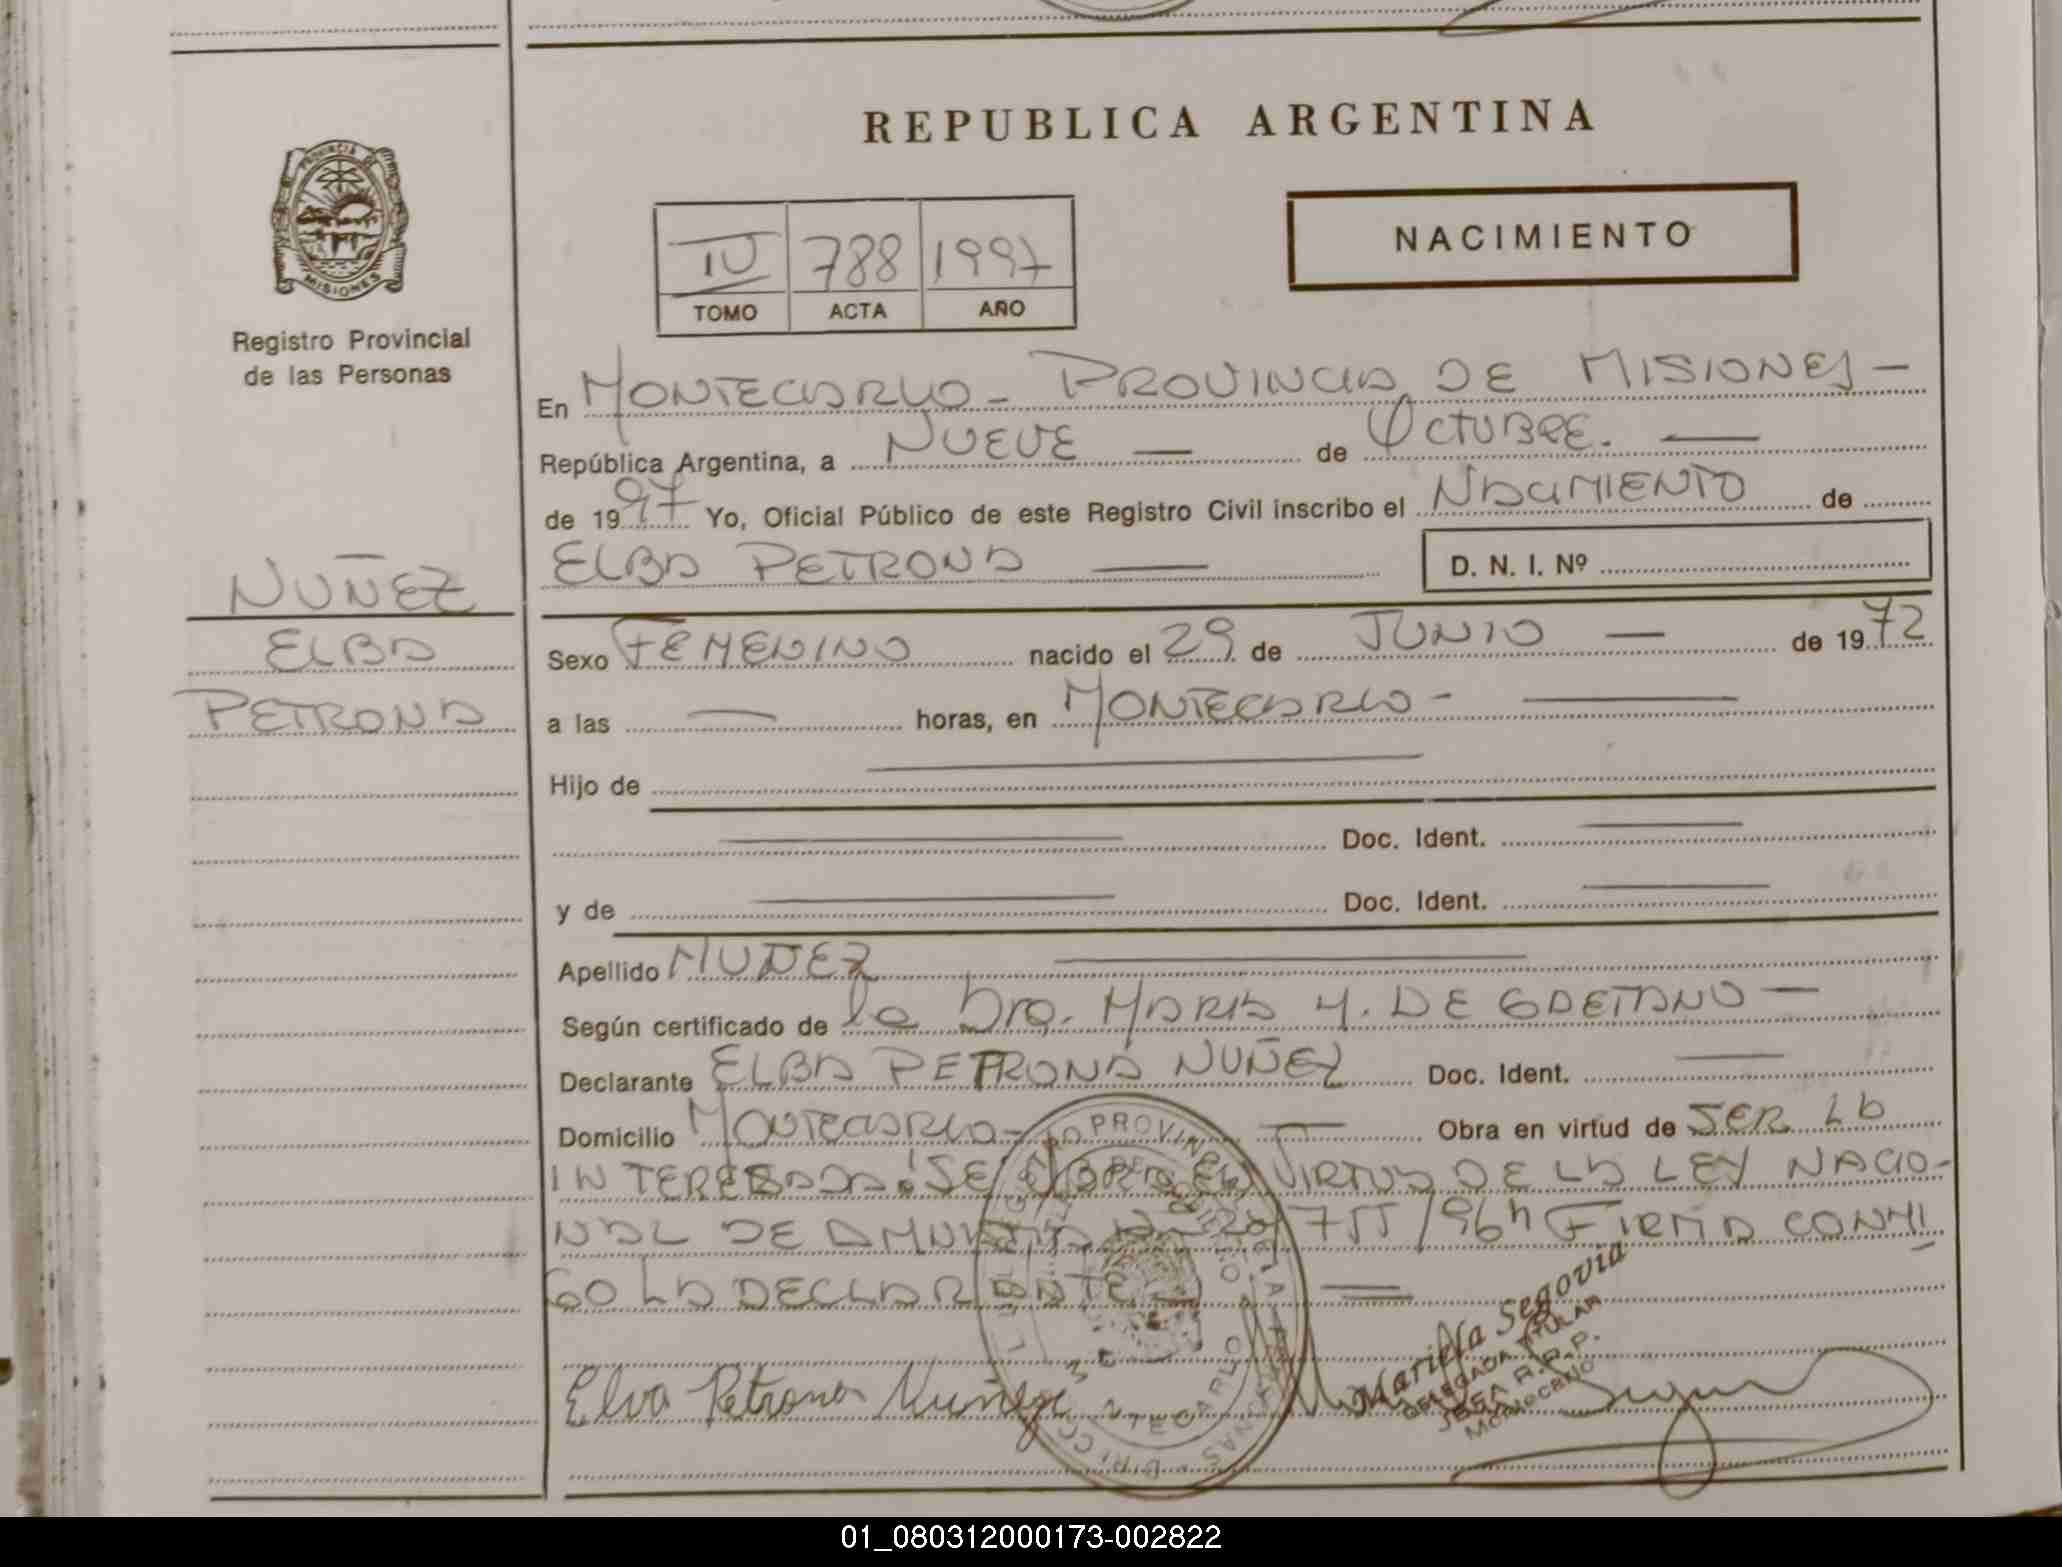 REPUBLICA ARGENTINA
NACIMIENTO
IV 788 1997
TOMO ACTA AÑO
PROVINCIA DE
MISIONES
Registro Provincial
de las Personas
NUÑEZ
ELBA
PETRONA
En MONTECARLO - PROVINCIA DE MISIONES -
República Argentina, a NUEVE — de OCTUBRE. —
de 1997 Yo, Oficial Público de este Registro Civil inscribo el NACIMIENTO de
ELBA PETRONA — D. N. I. Nº
Sexo FEMENINO nacido el 29 de JUNIO — de 1972
a las — horas, en MONTECARLO - —
Hijo de —
— Doc. Ident. —
y de — Doc. Ident. —
Apellido NUÑEZ —
Según certificado de la Dra. MARIA M. DE GAETANO —
Declarante ELBA PETRONA NUÑEZ Doc. Ident. —
Domicilio MONTECARLO - — Obra en virtud de SER LA
INTERESADA. SE EN VIRTUD DE LA LEY NACIO-
NAL DE AMNISTIA 755/96 FIRMA CONMI
GO LA DECLARANTE —
Elva Petrona Nuñez
Mariella Segovia
DELEGADA TITULAR
R.P.P.
Montecarlo
01_080312000173-002822